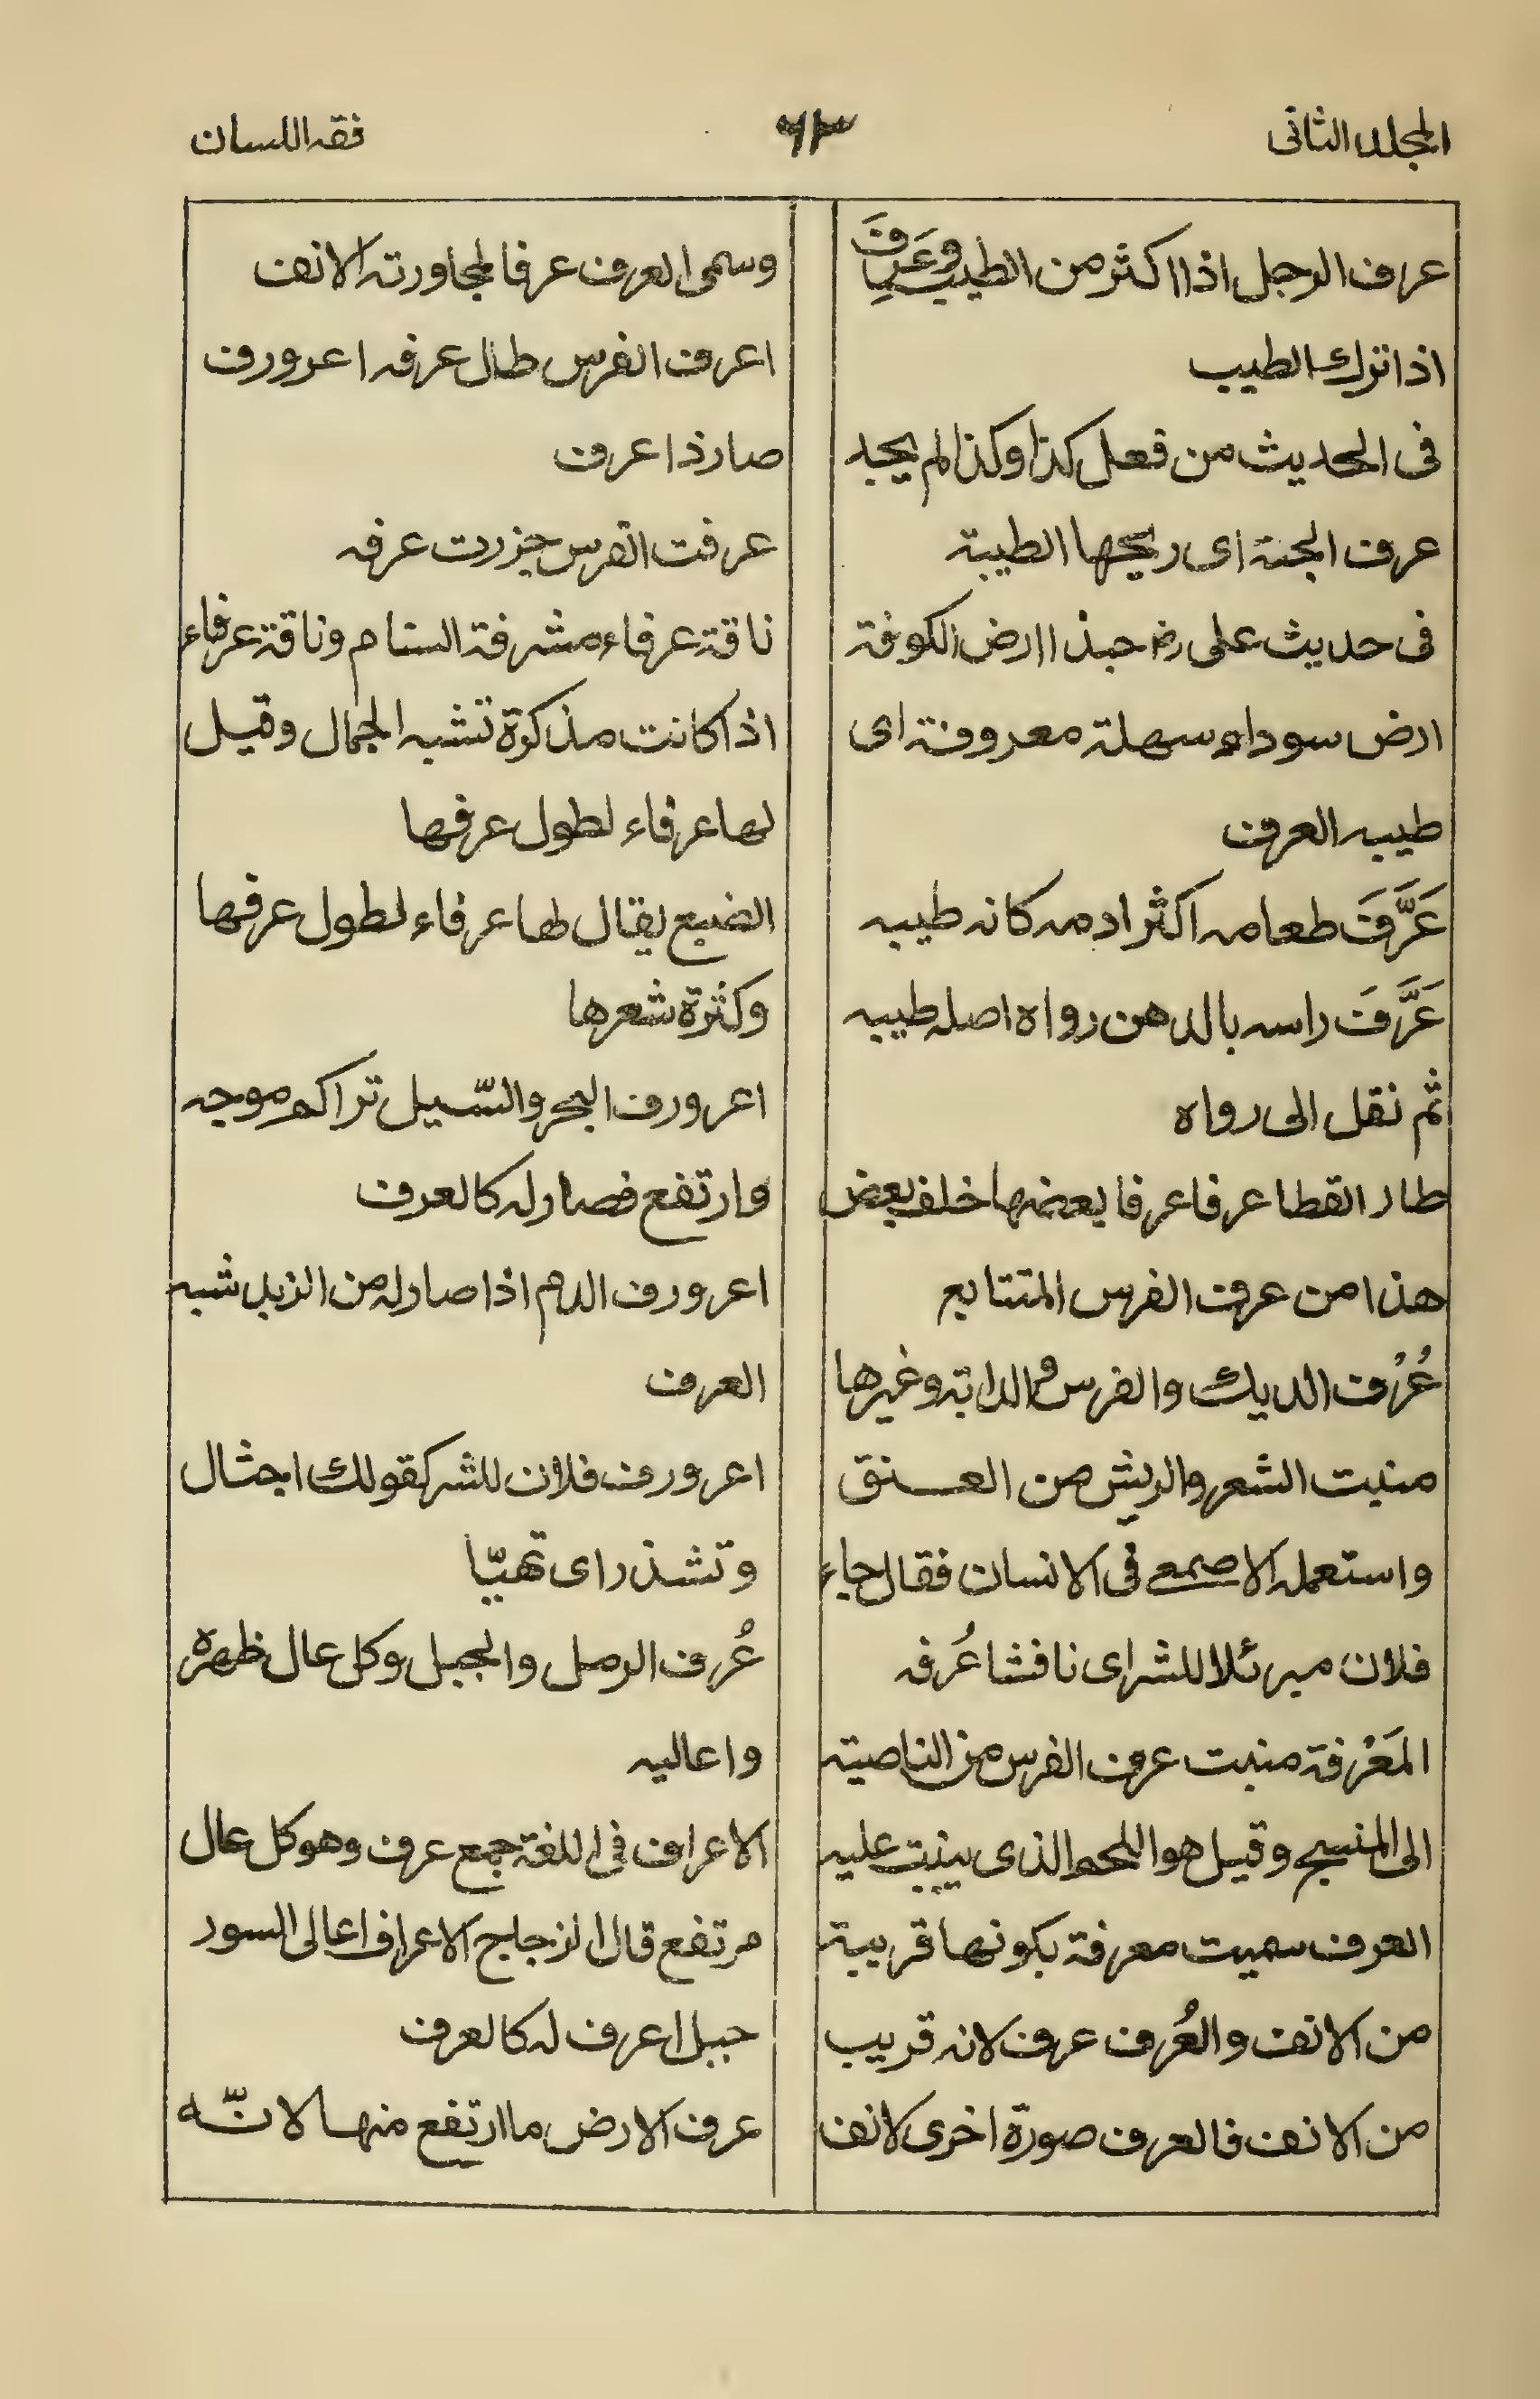 المجلد الثانی
۶۳
فقه اللسان
عرف الرجل اذا اکثر من الطیب وعَرِفَ
اذا ترك الطیب
فی الحدیث من فعل کذا وکذا لم یجد
عرف الجنة ای ریحها الطیبة
فی حدیث علی رض حبذا ارض الکوفة
ارض سوداء سهلة معروفة ای
طیبه العرف
عَرَّفَ طعامه اکثر ادمه کانه طیبه
عَرَّفَ راسه بالدهن رواه اصله طیبه
ثم نقل الی رواه
طار القطا عرفا عرفا بعضها خلف بعض
هذا من عرف الفرس المتتابع
عُرُف الدیك والفرس والدابة وغیرها
منبت الشعر والریش من العنق
واستعمله الاصمعی فی الانسان فقال جاء
فلان مبرئلا للشر ای نافشا عُرفه
المَعْرفة منبت عرف الفرس من الناصیة
الی المنسج وقیل هو اللحم الذی ینبت علیه
العرف سمیت معرفة بکونها قریبة
من الانف والعُرف عرف لانه قریب
من الانف فالعرف صورة اخری لانف
وسمی العرف عرفا لمجاورته الانف
اعرف الفرس طال عرفه اعرورف
صار ذا عرف
عرفت الفرس جزرت عرفه
ناقة عرفاء مشرفة السنام وناقة عرفاء
اذا کانت مذکرة تشبه الجمال وقیل
لها عرفاء لطول عرفها
الضبع یقال لها عرفاء لطول عرفها
وکثرة شعرها
اعرورف البحر والسّیل تراکم موجه
وارتفع فصار له کالعرف
اعرورف الدم اذا صار له من الزبد شبه
العرف
اعرورف فلان للشر کقولك اجثال
وتشذر ای تهیّا
عُرف الرمل والجبل وکل عال ظهره
واعالیه
الاعراف فی اللغة جمع عرف وهو کل عال
مرتفع قال الزجاج الاعراف اعالی السور
جبل اعرف له کالعرف
عرف الارض ما ارتفع منها لانّه